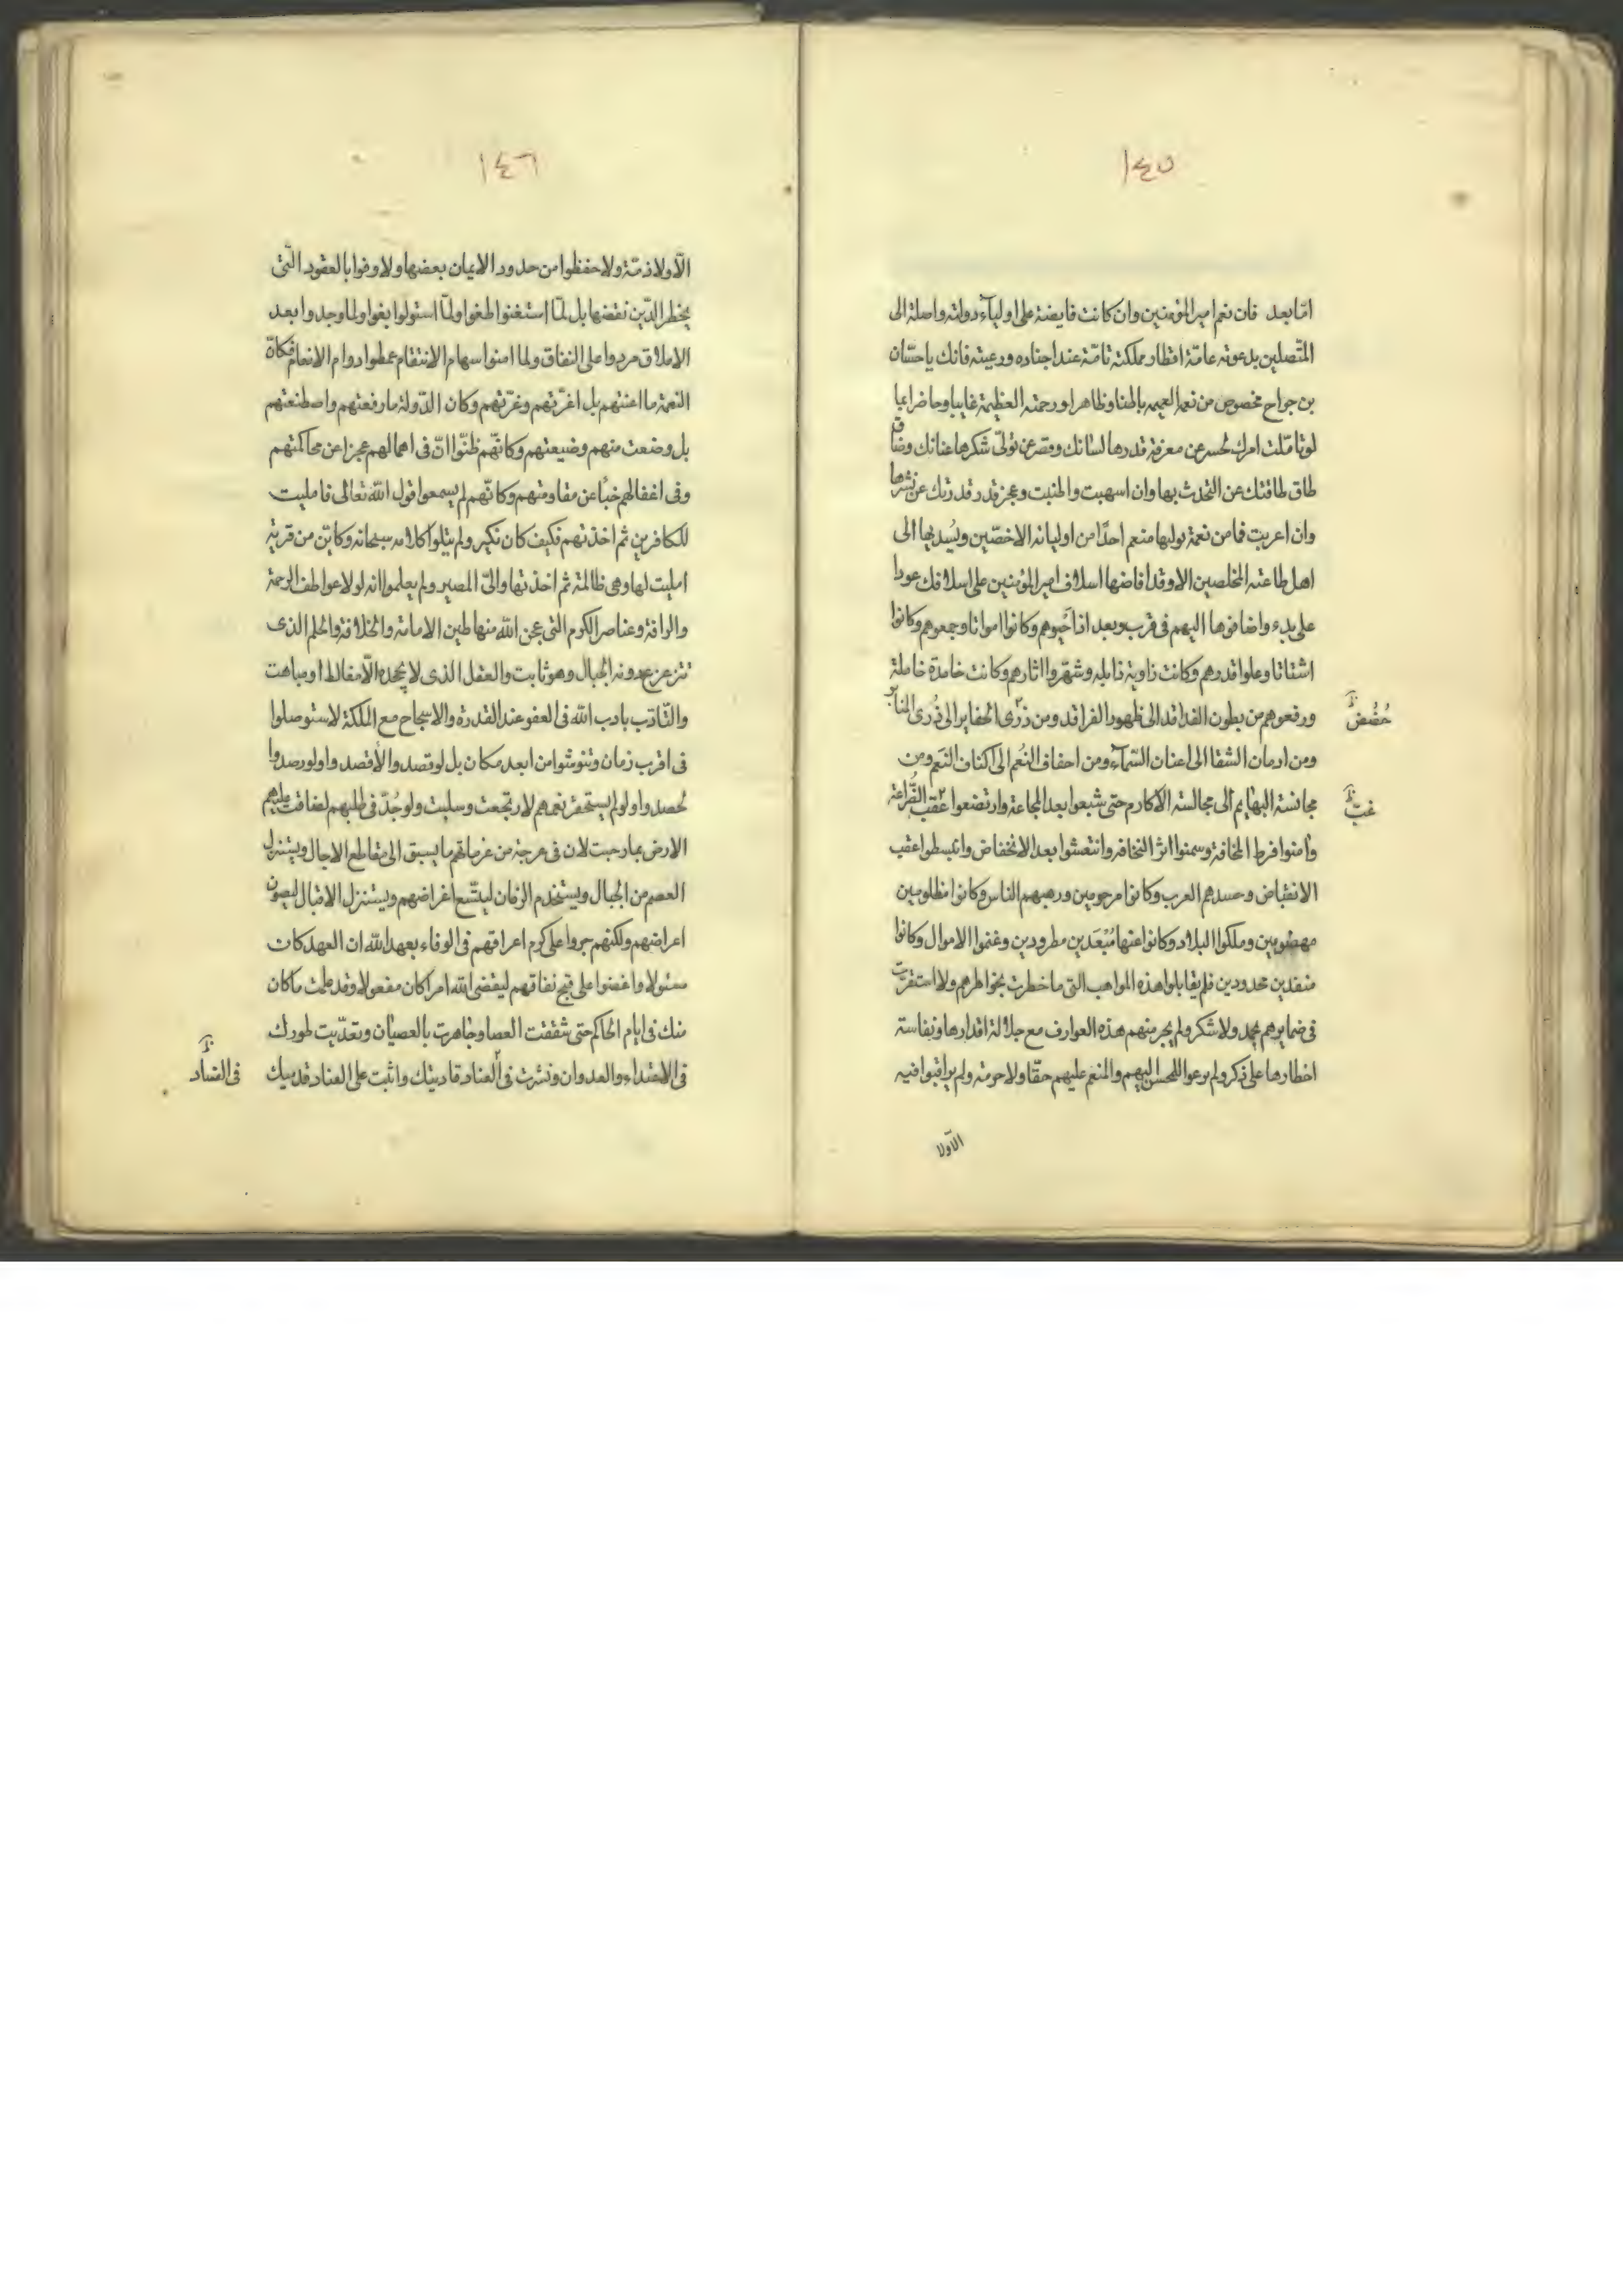 ١٤٥
امّا بعد فان نعم امير المؤمنين وان كانت فايضة على اوليآء دولته واصلة الى
المتّصلين بدعوته عامّة اقطار مملكته تامّة عند اجناده ورعيته فانك ياحسّان
بن جراح مخصوص من نعمه العميمه باطنا وظاهرا ورحمته العظيمة غايبا وحاضرا عيا
لو تامّلت امرك لحسر عن معرفة قدرها لسانك وقصر عن تولّى شكرها عنانك وضاق
طاق طاقتك عن التحدث بها وان اسهبت واطنبت وعجز قدر قدرتك عن نشرها
وان اعربت فما من نعمة يوليها منعم احدًا من اوليائه الاخصّين ويُسديها الى
اهل طاعته المخلصين الا وقد افاضها اسلاف امير المؤمنين على اسلافك عودا
على بدء واضافوها اليهم فى قرب وبعد اذ احيوهم وكانوا امواتا وجمعوهم وكانوا
اشتاتا وعلوا قدرهم وكانت ذاوية ذابله وشهّروا اثارهم وكانت خامدة خاملة
ورفعوهم من بطون الفدافد الى ظهور الفراقد ومن ذرى الحفاير الى ذُرى المنابر
حُضُض
ومن ادمان الشقا الى اعنان السّمآء ومن احفاف النُعم الى اكناف النَعم ومن
مجانسة البهايم الى مجالسة الاكارم حتى شبعوا بعد المجاعة وارتضعوا عقب الضّراعة
غبّ
وأمنوا فرط المخافة وسمنوا اثر النخافه وانتعشوا بعد الانخفاض وانبسطوا عقب
الانقباض وحسدهم العرب وكانوا مرحومين ورهبهم الناس وكانوا مظلومين
مهضومين وملكوا البلاد وكانوا عنها مُبْعَدين مطرودين وغنموا الاموال وكانوا
منفدين محدودين فلم يقابلوا هذه المواهب التى ما خطرت بخواطرهم ولا استقرت
فى ضمايرهم بحمد ولا شكر ولم يجر منهم هذه العوارف مع جلالة اقدارها ونفاسة
اخطارها على ذكر ولم يرعوا للمحسن اليهم والمنعم عليهم حقّا ولا حرمة ولم يراقبوا فيه
الّا ولا
١٤٦
الّا ولا ذمّة ولا حفظوا من حدود الايمان بعضها ولا وفوا بالعقود الّتى
يخطر الدّين نقضها بل لمّا استغنوا طغوا ولمّا استولوا بغوا ولما وجدوا بعد
الاملاق مردوا على النفاق ولما امنوا سهام الانتقام غمطوا دوام الانعام فكانّ
النعمة ما اغنتهم بل اغرّتهم وغرّتهم وكان الدّولة ما رفعتهم واصطنعتهم
بل وضعت منهم وضيعتهم وكانّهم ظنّوا انّ فى اهمالهم عجزا عن محاكمتهم
وفى اغفالهم خبًا عن مقاومتهم وكانّهم لم يسمعوا قول الله تعالى فامليت
للكافرين ثم اخذتهم فكيف كان نكير ولم يتلوا كلامه سبحانه وكاين من قرية
امليت لها وهى ظالمة ثم اخذتها والىّ المصير ولم يعلموا انه لولا عواطف الرحمة
والرافة وعناصر الكرم التى عجن الله منها طين الامامة والخلافة والحلم الذى
تتزعزع دونه الجبال وهو ثابت والعقل الذى لا يجحده الّا مغالط او مباهت
والتّادّب بادب الله فى العفو عند القدرة والاسجاح مع الملكة لاستوصلوا
فى اقرب زمان وتنوشوا من ابعد مكان بل لو قصدوا لاقصدوا ولو رصدوا
لحصدوا ولو لم يستحقر نعمهم لارتجعت وسلبت ولو جُدّ فى طلبهم لضاقت عليهم
الارض بما رحبت لان فى عرجة من عزماتهم ما يسبق الى مقاطع الاجال ويستنزل
العصم من الجبال ويستخدم الزمان ليتّسع اغراضهم ويستنزل الاقبال ليصون
اعراضهم ولكنهم جروا على كرم اعراقهم فى الوفاء بعهد الله ان العهد كان
مسئولا واغضوا على قبح نفاقهم ليقضى الله امرا كان مفعولا وقد علمت ما كان
منك فى ايام الحاكم حتى شققت العصا وجاهرت بالعصيان وتعدّيت طورك
فى الاعتداء والعدوان ونشرت فى العناد قادمتك واثبت على العناد قدميك
فى الفساد